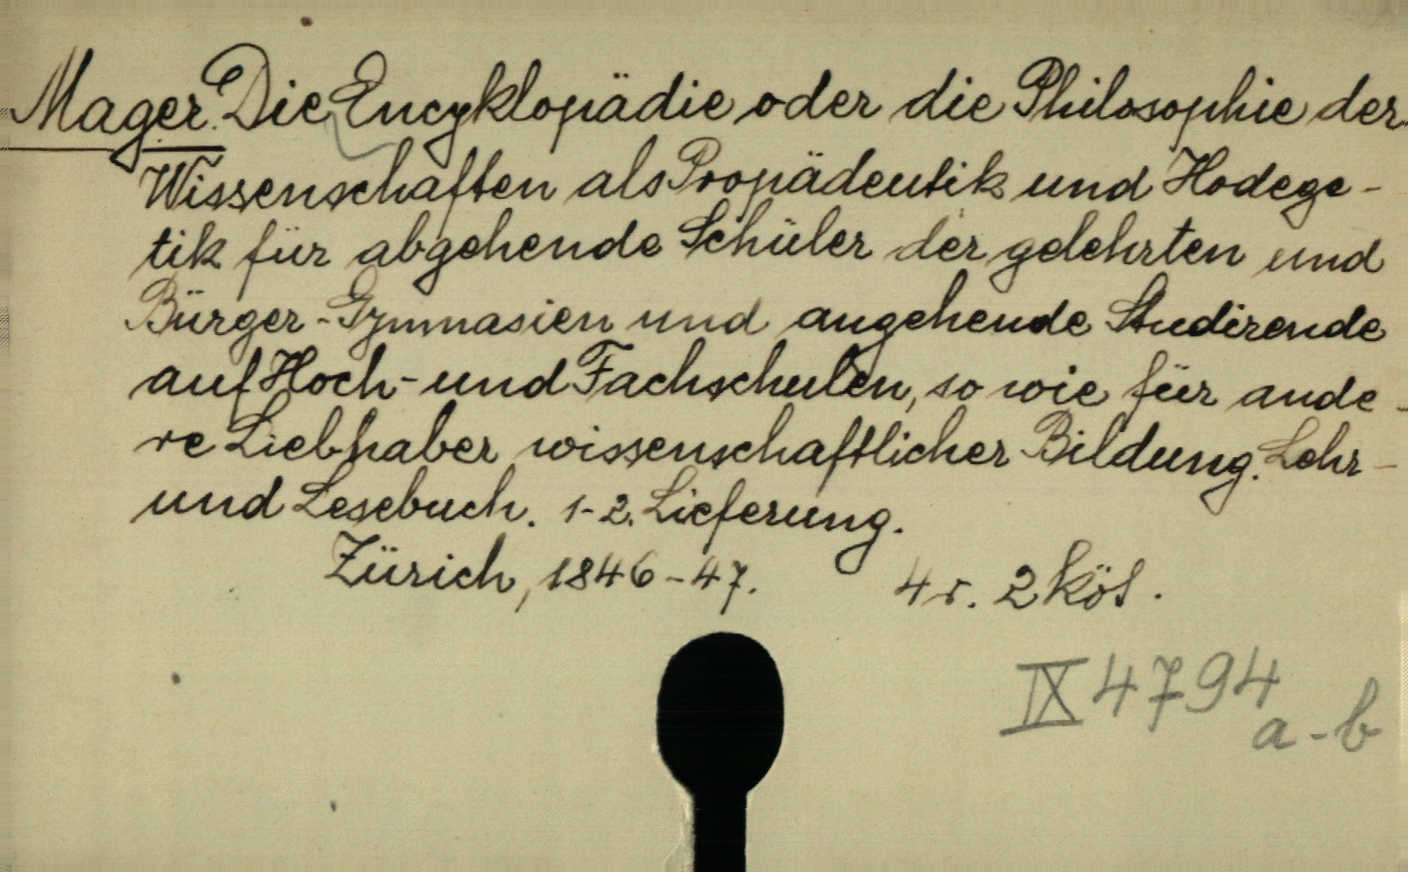 Mager. Die Encyklopädie oder die Philosophie der
Wissenschaften als Propädeutik und Hodege-
tik für abgehende Schüler der gelehrten und
Bürger-Gymnasien und angehende Studirende
auf Hoch- und Fachschulen, so wie für ande-
re Liebhaber wissenschaftlicher Bildung. Lehr-
und Lesebuch. 1-2. Lieferung.
Zürich, 1846-47. 4r. 2 köt.
IX 4794
a-b